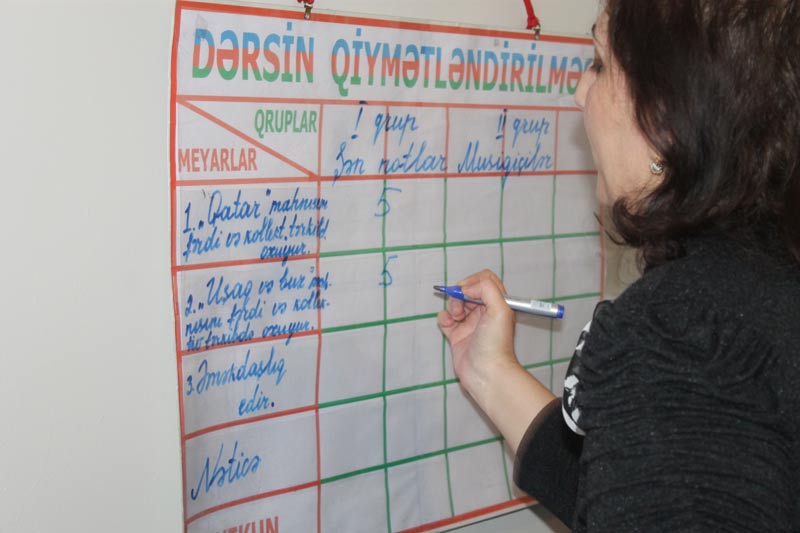 DƏRSİN QİYMƏTLƏNDİRİLMƏS
QRUPLAR
MEYARLAR
I qrup
Şən notlar
II qrup
Musiqiçilər
1. "Qatar" mahnısını
fərdi və kollekt. tərkibdə
oxuyur.
5
2. "Uşaq və buz" mah-
nısını fərdi və kollek-
tiv tərkibdə oxuyur.
5
3. Əməkdaşlıq
edir.
Nəticə
YEKUN